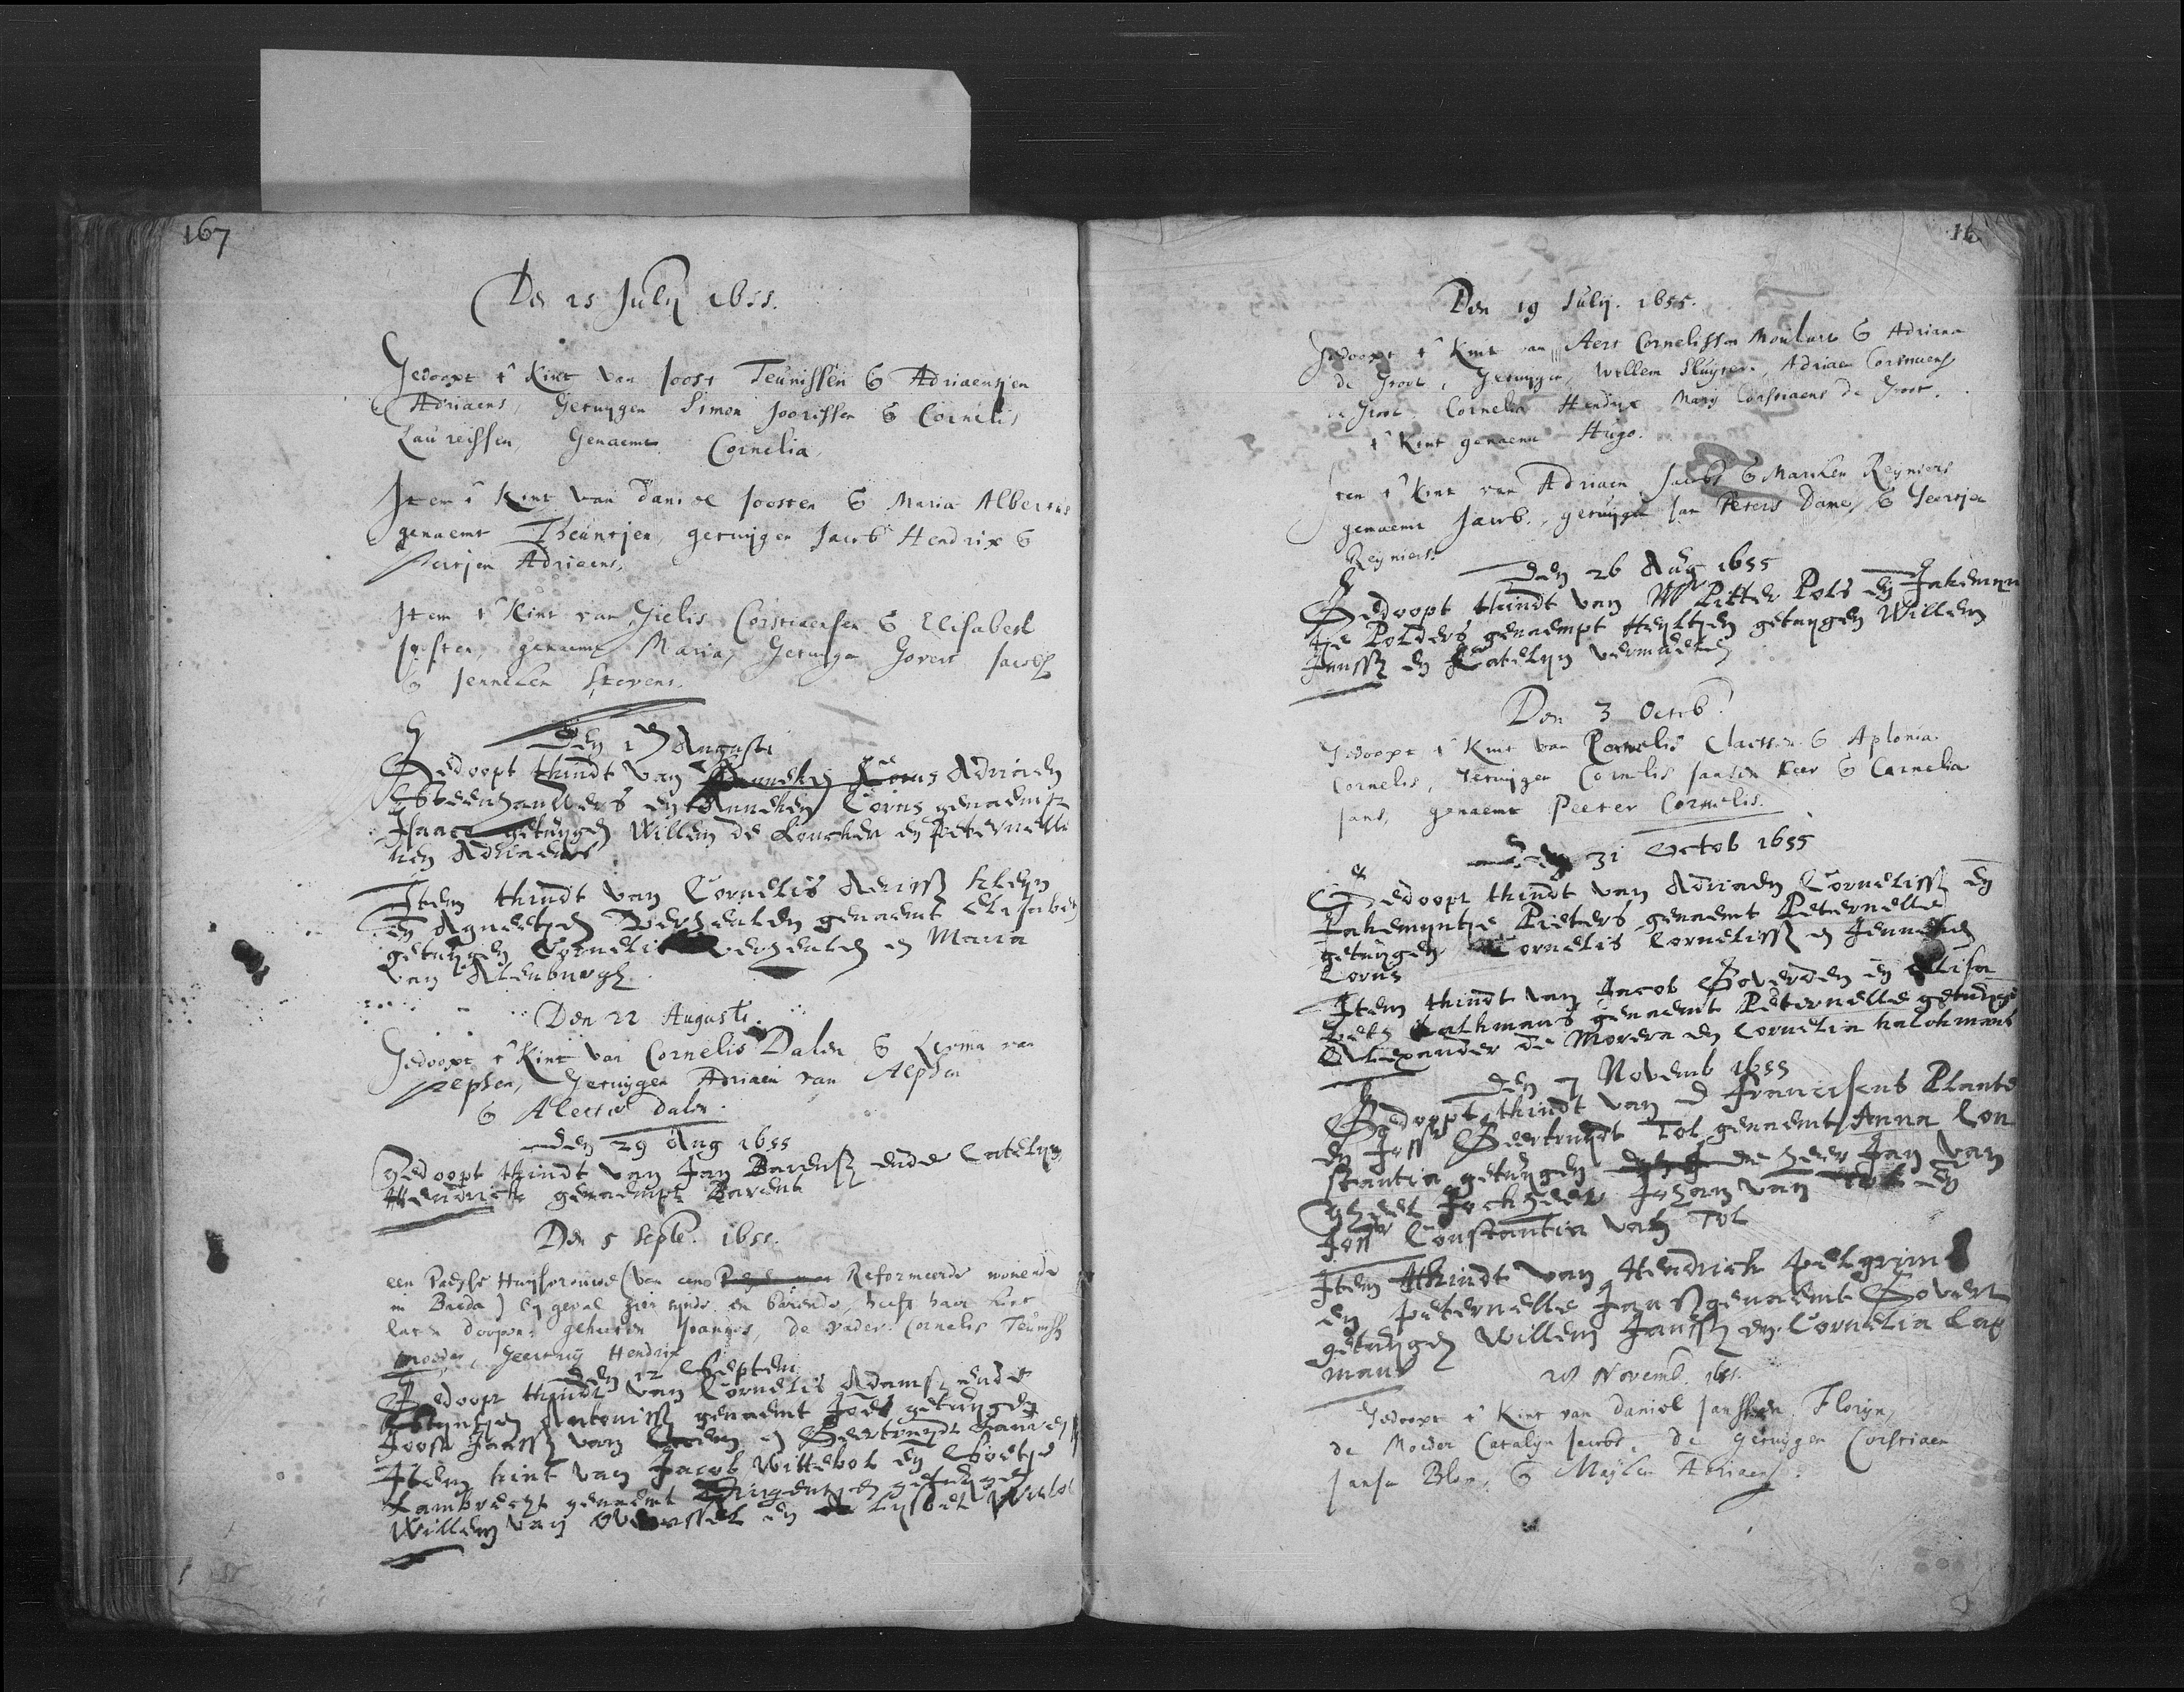 167
De 25 July 1655.
Gedoopt t' Kint van Joost Teunissen & Adriaentjen
Adriaens, Getuygen Simon Joorissen & Cornelis
Laureissen, Genaemt Cornelia
Item t' Kint van Daniel Joosten & Maria Alberts
genaemt Theuntjen, getuijgen Jacob Hendrix &
Adriaens.
Item t' Kint van Gielis Corstiaensen & Elisabeth
Joosten, genaemt Maria, Getuijgen Govert Jacobs
& Jenneken Stevens.
Den Augusti
Gedoopt tkindt van Adriaen
en Anneken Corns genaemt
Isaac getuygen Willem de en Peternelle
ken Adriaens
Item tkindt van Cornelis Aerissz kleyn
en Agneetjen genaemt Elisabet
getuygen Cornelis en Maria
van
Den 22 Augusti.
Gedoopt t' Kint van Cornelis Dalen & van
Getuijgen Adriaen van Alphen
& Dalen.
Den 29 Aug 1655
Gedoopt tkindt van Jan Barensz ende Catelijn
Hendrick genaempt Barent
Den 5 Septe. 1655.
een Paepse Huysvrouwe (van eens Reformeerde wonende
in Breda) by geval hier synde en barende, heeft haer kint
laten doopen, geheeten Joannes, de vader Cornelis Teunissz
moeder, Geertruij Hendrix
Den 12 Septem
Gedoopt tkindt van Cornelis Adamsz ende
Antonissz genaemt getuygen
Joost Janssz van en Geertruydt
Item kint van Jacob Wittebol en Soetje
Lambrechts genaemt Dingentjen getuygen
Willem van Overssel en Lysbet
16
Den 19 July. 1655.
Gedoopt t' Kint van Aert Cornelissen & Adriana
de Groot, Getuygen, Willem Sluyter, Adriaen
de Groot, Cornelia Hendrix Mary Corstiaens de Groot.
t' Kint genaemt Hugo.
Item t' Kint van Adriaen Jacobs & Mariken Reyniers
genaemt Jacob, getuijgen Jan Peters Dame, & Geertjen
Reyniers.
Den 26 Aug 1655
Gedoopt tkindt van Mr Pitter Pols en Jakemyn
tje Polders genaempt Heyltjen getuygen Willem
Janssz en Catelyn
Den 3 Octob.
Gedoopt t' Kint van Cornelis Claessen & Aplonia
Cornelis, Getuijgen Cornelis Jansen Keer & Cornelia
Jans, genaemt Peeter Cornelis.
Den 31 Octob 1655
Gedoopt tkindt van Adriaen Cornelissz en
Jakemyntje Pieters genaemt Peternelle
getuygen Cornelis Cornelissz en Jenneken
Corns
Item tkindt van Jacob Goverden en Elisa
beth kalkmans genaemt Peternelle getuyge
Allexander de Morera en Cornelia kalckmans
Den 7 Novemb 1655
Gedoopt tkindt van D Franciscus Plante
en Joffr Geertruydt Tol genaemt Anna Con
stantia getuygen de heer Jan van
Gheel Jockheer Johan van Tol en
Joffr Constantia van Tol
Item tkindt van Hendrick pelgrim
en peternelle Janss genaemt Govert
getuygen Willem Janssz en Cornelia Lag
mans
28 Novemb. 1655.
Gedoopt t' Kint van Daniel Janssen, Florijn,
de Moeder Catalyn Jacobs, de getuygen Corstiaen
Janse Blom, & Mayken Adriaens.